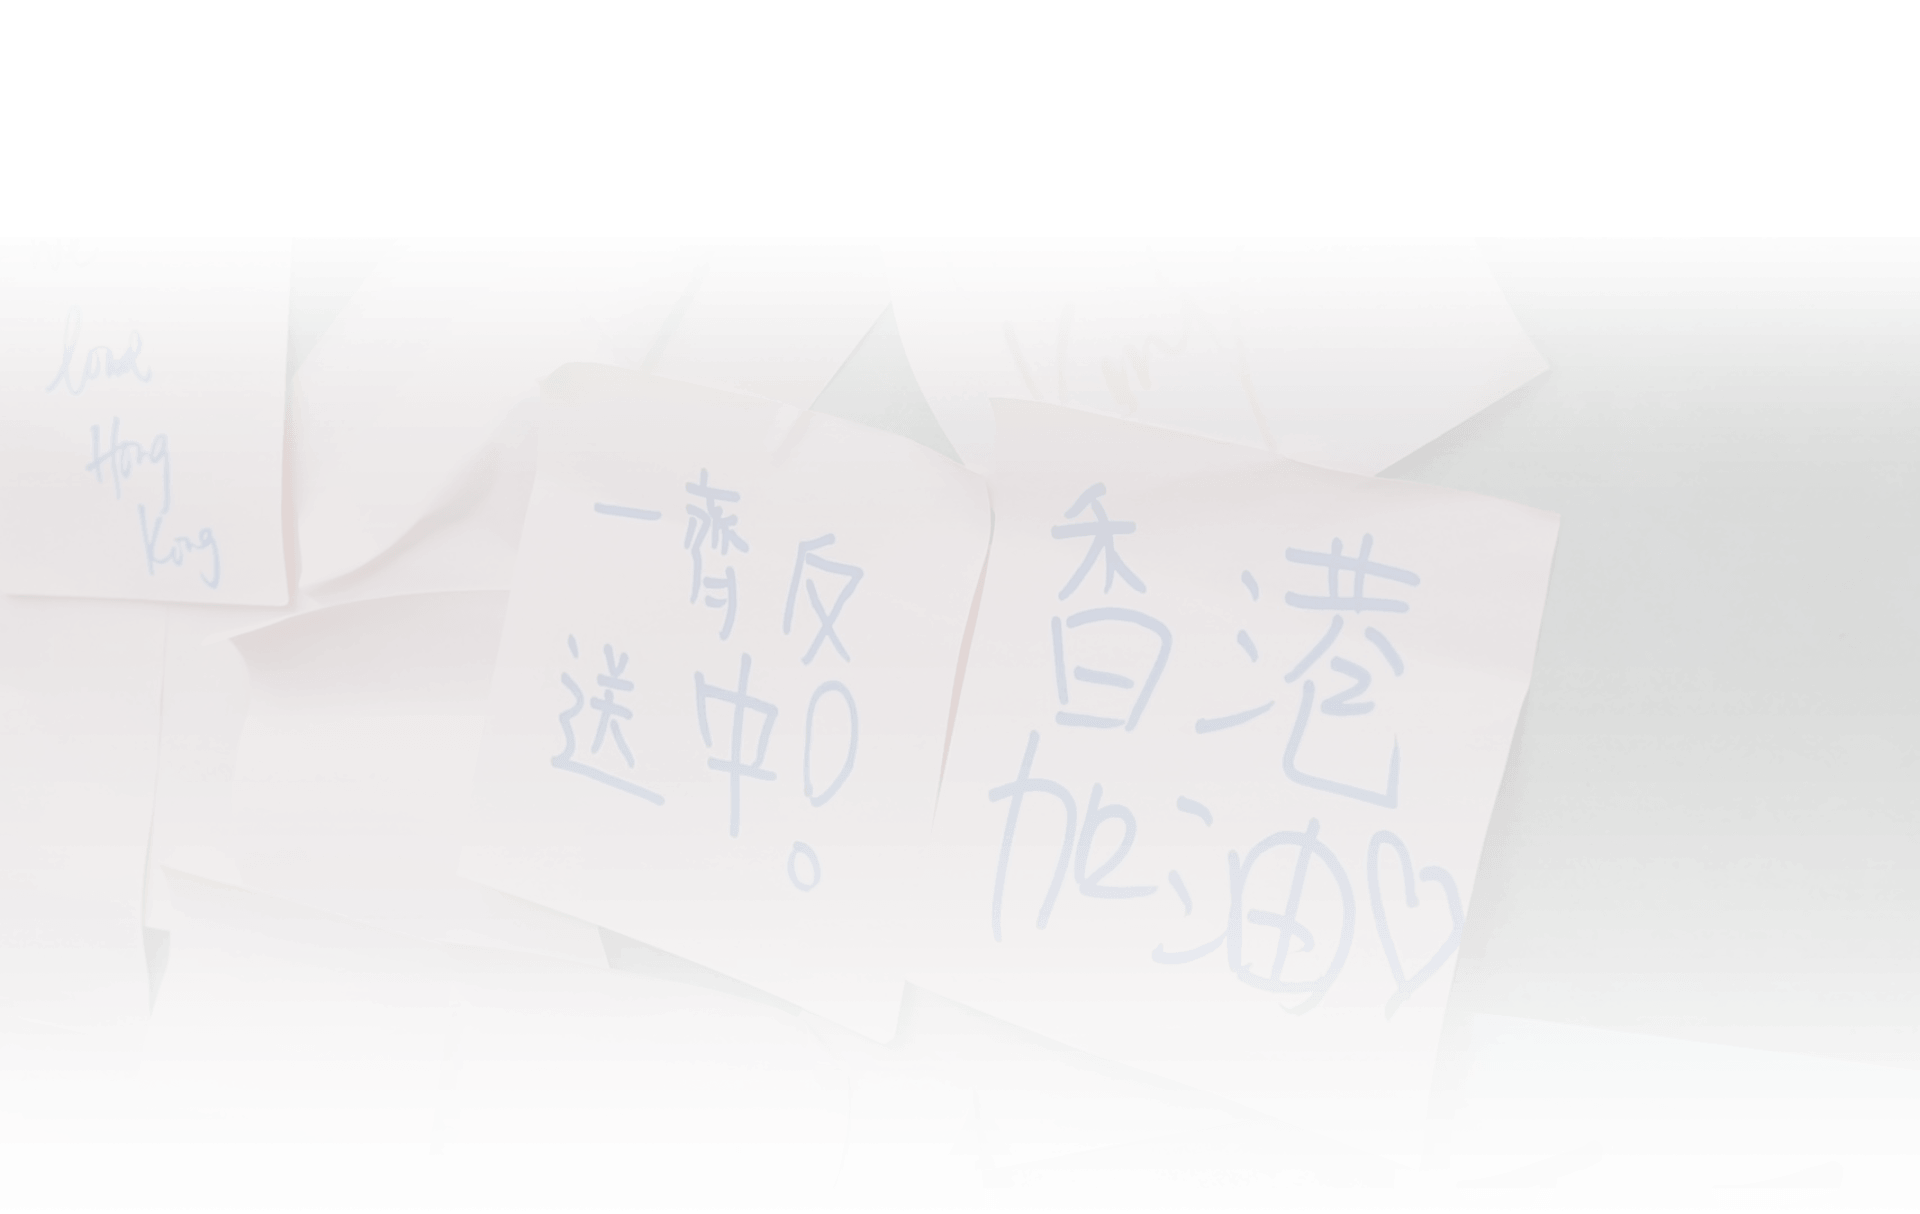 love
Hong
Kong
一齊反
送中!
香港
加油♡